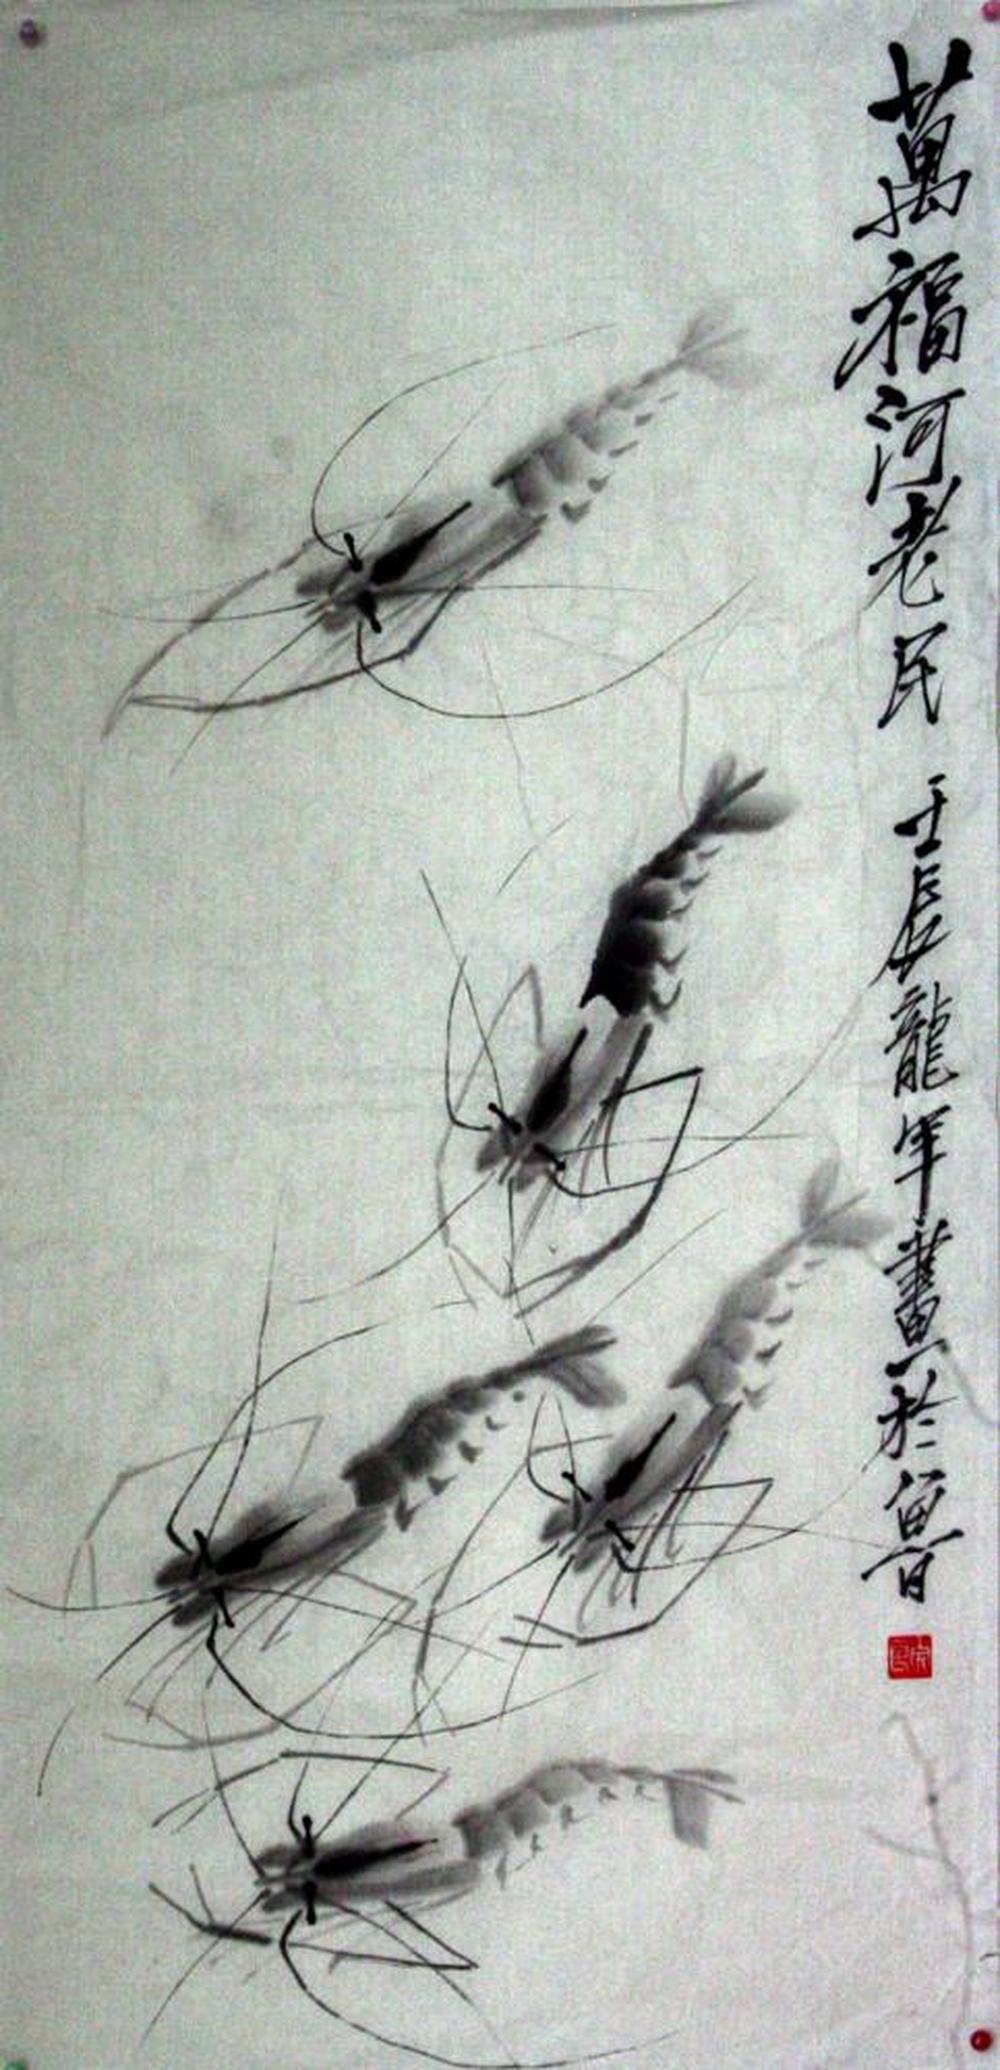 萬福河老民 壬辰龍年畫於魯